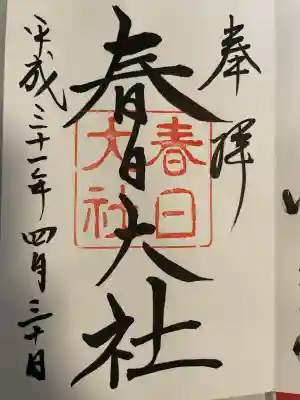 奉拝
春日大社
春日大社
平成三十一年四月三十日